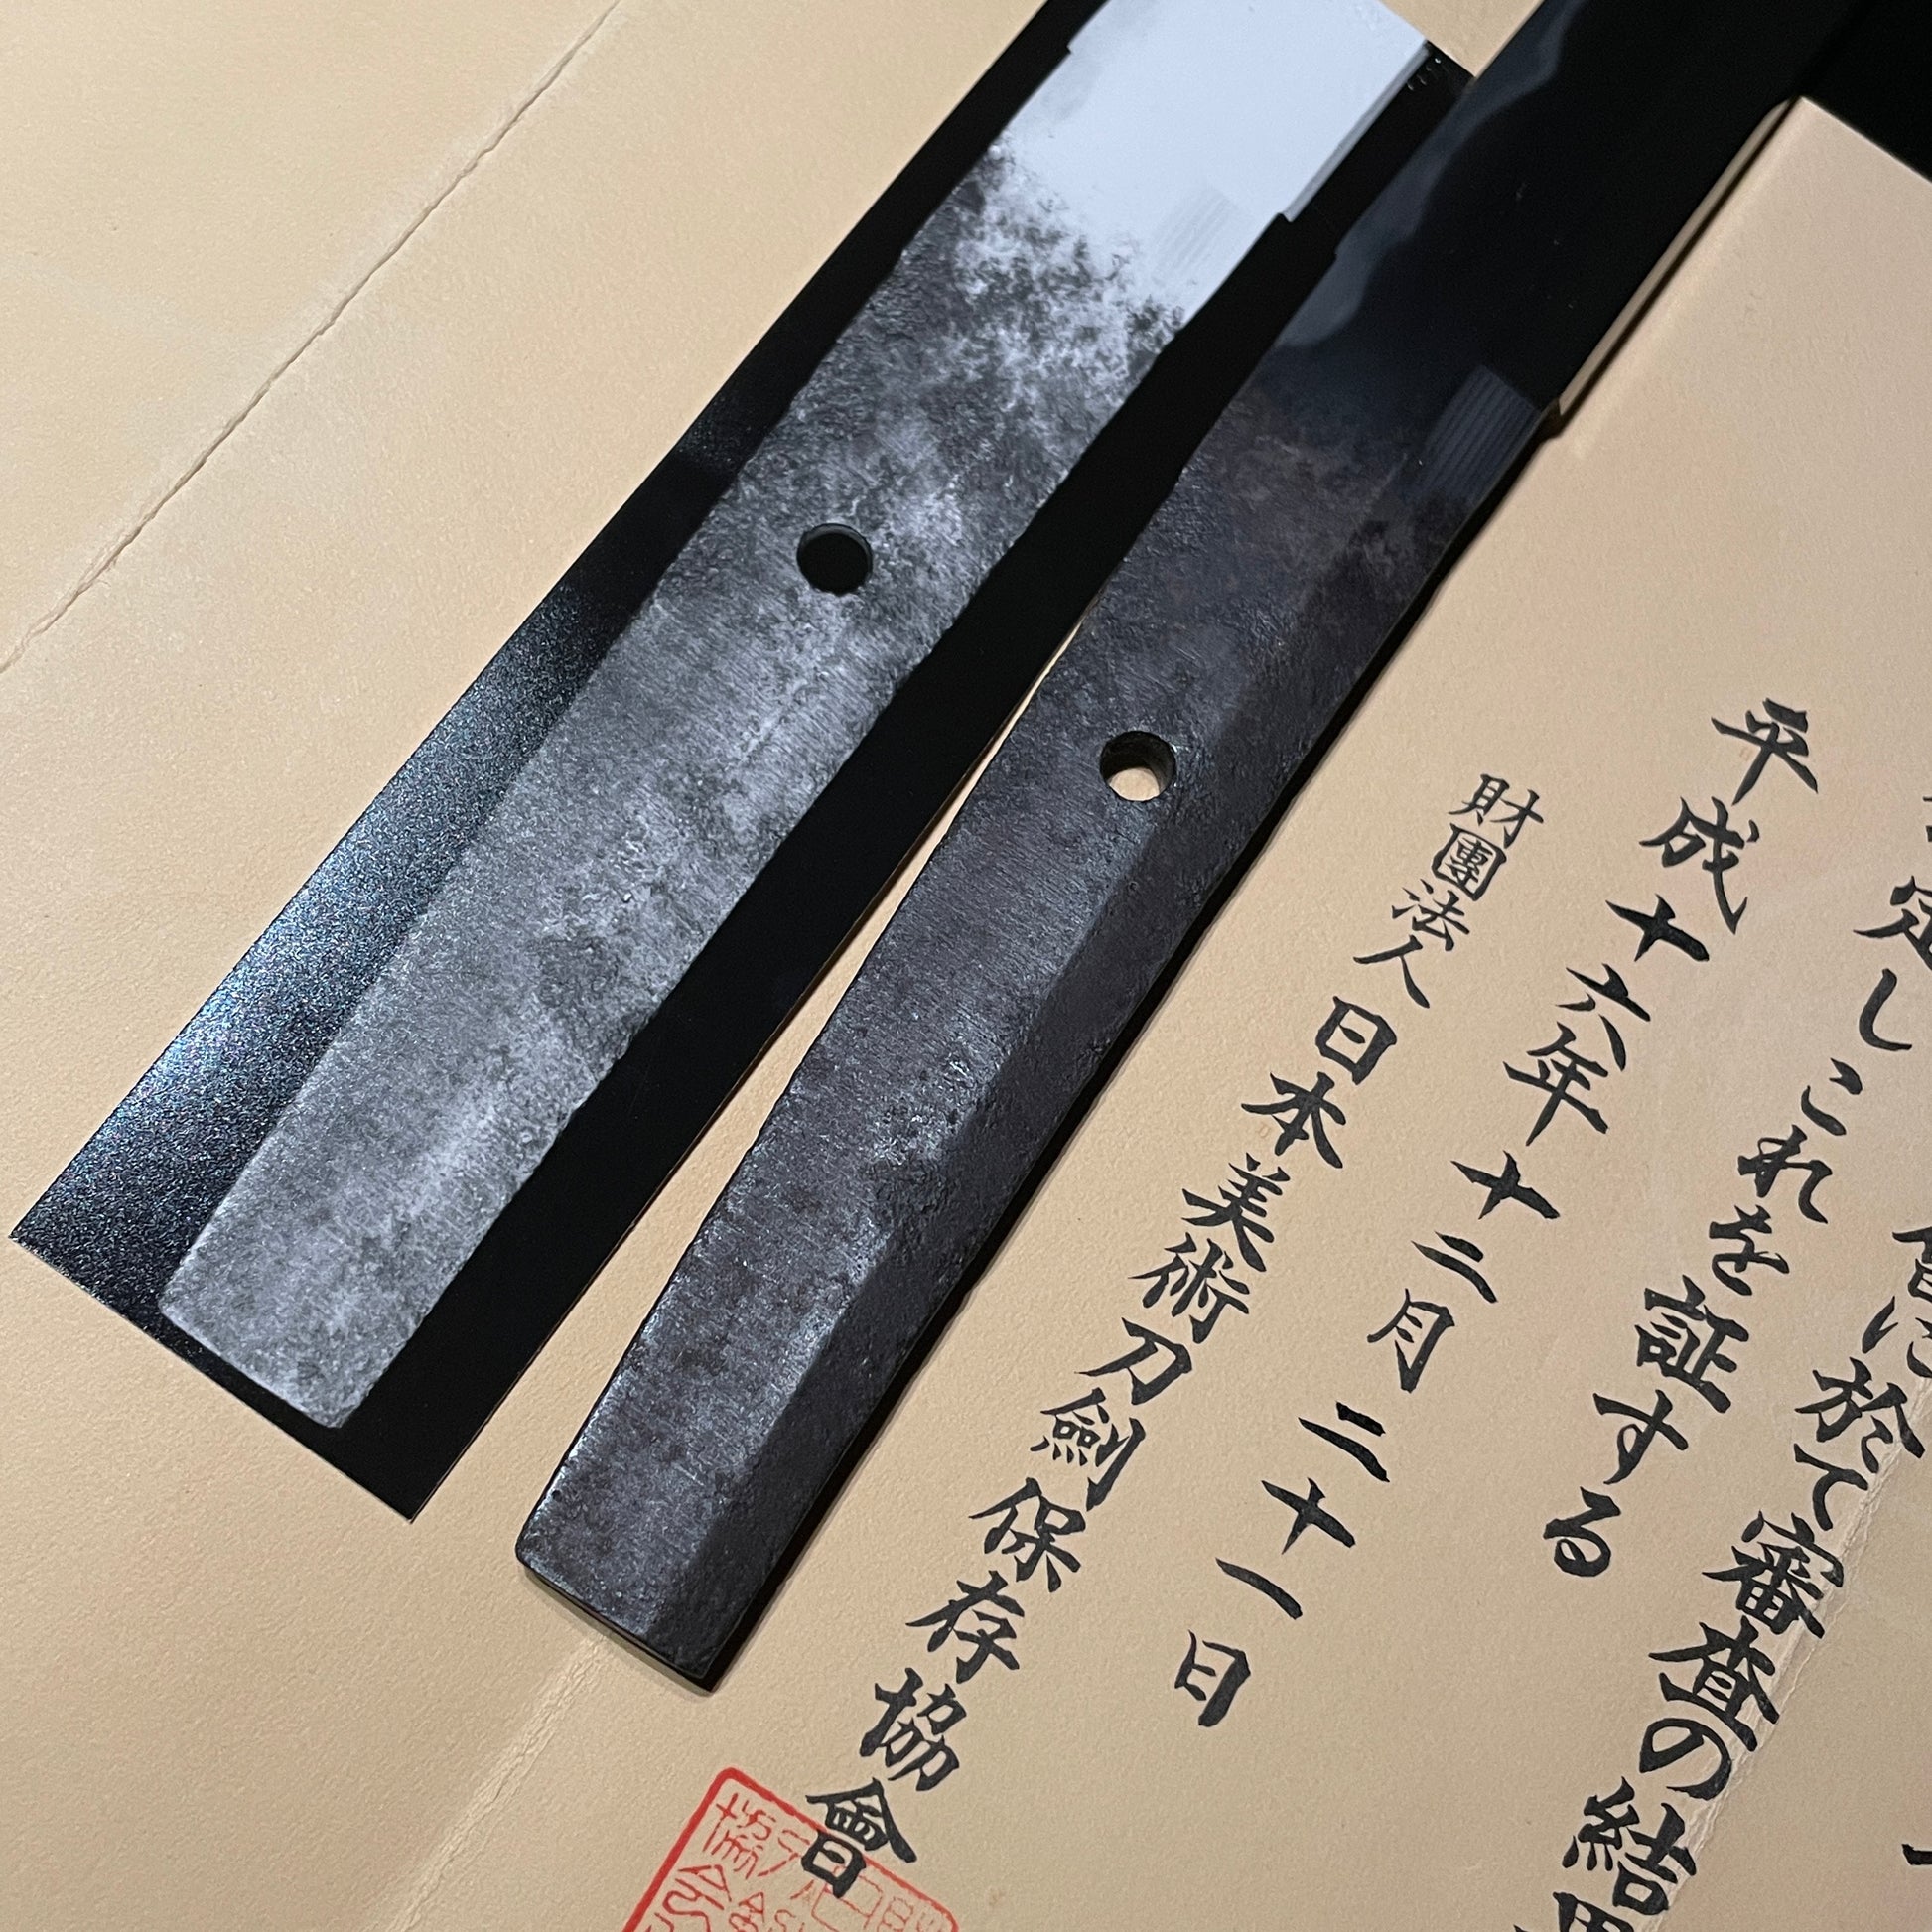 に於て審査の結果
定しこれを証する
平成十六年十二月二十一日
財團法人日本美術刀劍保存協會